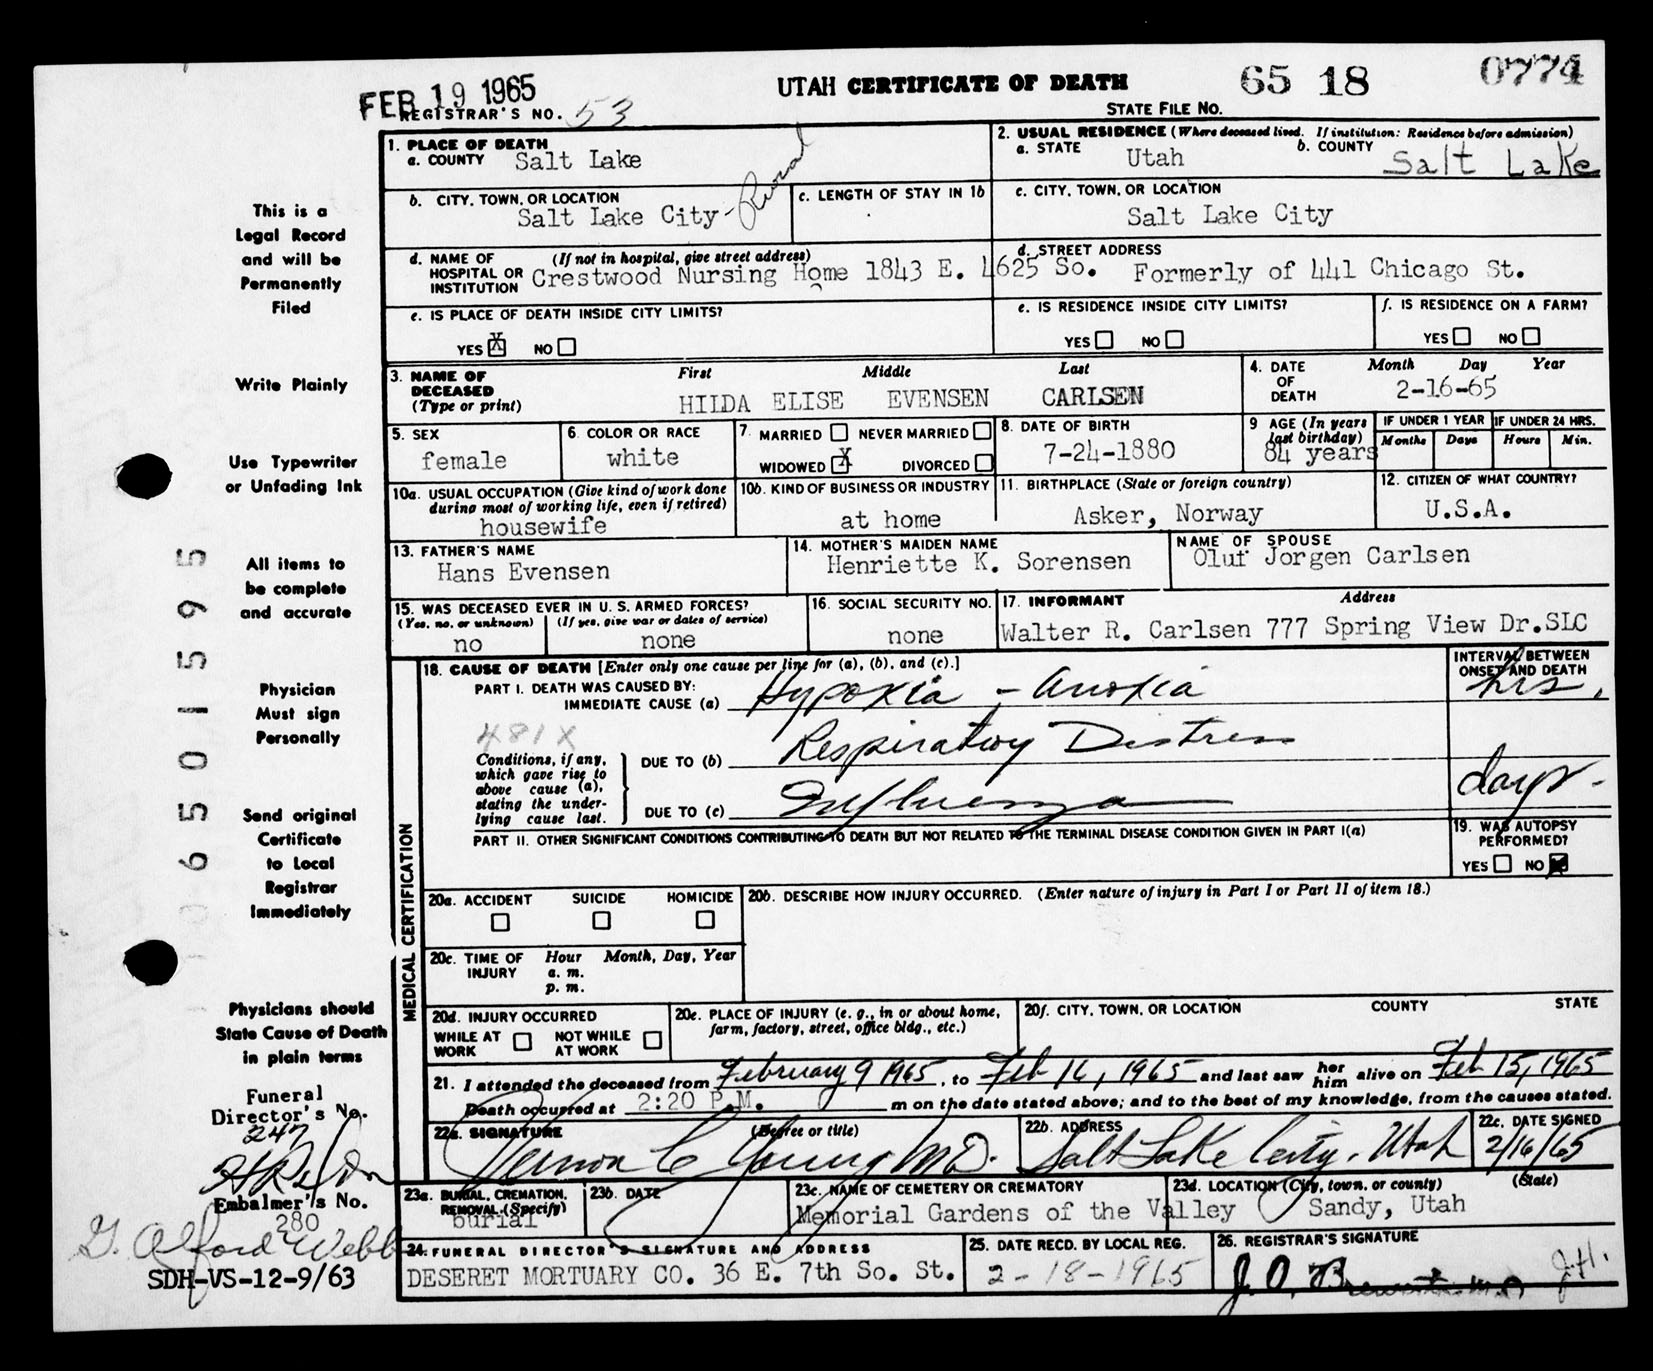 FEB 19 1965
UTAH CERTIFICATE OF DEATH 65 18 0774
REGISTRAR'S NO. 53
STATE FILE NO.
1. PLACE OF DEATH
a. COUNTY Salt Lake
2. USUAL RESIDENCE (Where deceased lived. If institution: Residence before admission)
a. STATE Utah b. COUNTY Salt Lake
b. CITY, TOWN, OR LOCATION
Salt Lake City - Rural
c. LENGTH OF STAY IN 1b
c. CITY, TOWN, OR LOCATION
Salt Lake City
d. NAME OF HOSPITAL OR INSTITUTION (If not in hospital, give street address)
Crestwood Nursing Home 1843 E. 4625 So.
d. STREET ADDRESS
Formerly of 441 Chicago St.
e. IS PLACE OF DEATH INSIDE CITY LIMITS?
YES X NO
e. IS RESIDENCE INSIDE CITY LIMITS?
YES NO
f. IS RESIDENCE ON A FARM?
YES NO
3. NAME OF DECEASED (Type or print)
First Middle Last
HILDA ELISE EVENSEN CARLSEN
4. DATE OF DEATH
Month Day Year
2-16-65
5. SEX
female
6. COLOR OR RACE
white
7. MARRIED NEVER MARRIED
WIDOWED X DIVORCED
8. DATE OF BIRTH
7-24-1880
9 AGE (In years last birthday)
84 years
IF UNDER 1 YEAR
Months Days
IF UNDER 24 HRS.
Hours Min.
10a. USUAL OCCUPATION (Give kind of work done during most of working life, even if retired)
housewife
10b. KIND OF BUSINESS OR INDUSTRY
at home
11. BIRTHPLACE (State or foreign country)
Asker, Norway
12. CITIZEN OF WHAT COUNTRY?
U.S.A.
13. FATHER'S NAME
Hans Evensen
14. MOTHER'S MAIDEN NAME
Henriette K. Sorensen
NAME OF SPOUSE
Oluf Jorgen Carlsen
15. WAS DECEASED EVER IN U. S. ARMED FORCES?
(Yes, no, or unknown) (If yes, give war or dates of service)
no none
16. SOCIAL SECURITY NO.
none
17. INFORMANT Address
Walter R. Carlsen 777 Spring View Dr.SLC
MEDICAL CERTIFICATION
18. CAUSE OF DEATH [Enter only one cause per line for (a), (b), and (c).]
INTERVAL BETWEEN ONSET AND DEATH
PART I. DEATH WAS CAUSED BY:
IMMEDIATE CAUSE (a) Hypoxia - Anoxia hrs.
481X
Conditions, if any, which gave rise to above cause (a), stating the underlying cause last.
DUE TO (b) Respiratory Distress
DUE TO (c) Influenza days -
PART II. OTHER SIGNIFICANT CONDITIONS CONTRIBUTING TO DEATH BUT NOT RELATED TO THE TERMINAL DISEASE CONDITION GIVEN IN PART I(a)
19. WAS AUTOPSY PERFORMED?
YES NO X
20a. ACCIDENT SUICIDE HOMICIDE
20b. DESCRIBE HOW INJURY OCCURRED. (Enter nature of injury in Part I or Part II of item 18.)
20c. TIME OF INJURY
Hour Month, Day, Year
a. m.
p. m.
20d. INJURY OCCURRED
WHILE AT WORK NOT WHILE AT WORK
20e. PLACE OF INJURY (e. g., in or about home, farm, factory, street, office bldg., etc.)
20f. CITY, TOWN, OR LOCATION COUNTY STATE
21. I attended the deceased from February 9 1965, to Feb 16, 1965 and last saw her him alive on Feb 15, 1965
Death occurred at 2:20 P.M. m on the date stated above; and to the best of my knowledge, from the causes stated.
22a. SIGNATURE (Degree or title)
Vernon C Young M.D.
22b. ADDRESS
Salt Lake City, Utah
22c. DATE SIGNED
2/16/65
23a. BURIAL, CREMATION, REMOVAL (Specify)
burial
23b. DATE
23c. NAME OF CEMETERY OR CREMATORY
Memorial Gardens of the Valley
23d. LOCATION (City, town, or county) (State)
Sandy, Utah
24. FUNERAL DIRECTOR'S SIGNATURE AND ADDRESS
DESERET MORTUARY CO. 36 E. 7th So. St.
25. DATE RECD. BY LOCAL REG.
2-18-1965
26. REGISTRAR'S SIGNATURE
J.H.
This is a
Legal Record
and will be
Permanently
Filed
Write Plainly
Use Typewriter
or Unfading Ink
All items to
be complete
and accurate
Physician
Must sign
Personally
Send original
Certificate
to Local
Registrar
Immediately
Physicians should
State Cause of Death
in plain terms
Funeral
Director's No.
247
Embalmer's No.
280
G. Alford Webb
SDH-VS-12-9/63
06501595